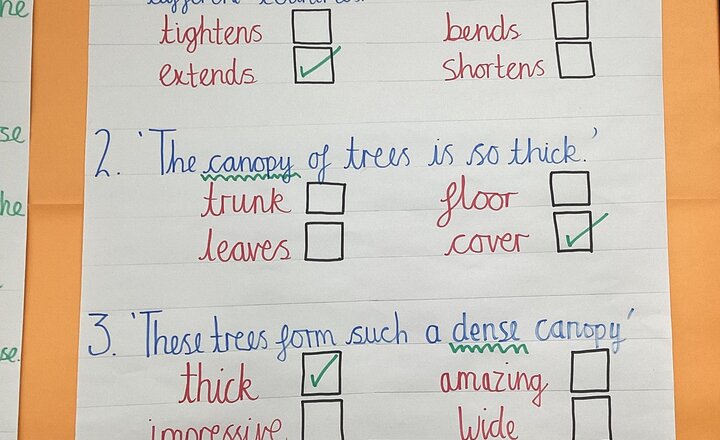 he
se
he
se.
tightens bends
extends shortens
2. 'The canopy of trees is so thick.'
trunk floor
leaves cover
3. 'These trees form such a dense canopy'
thick amazing
impressive wide